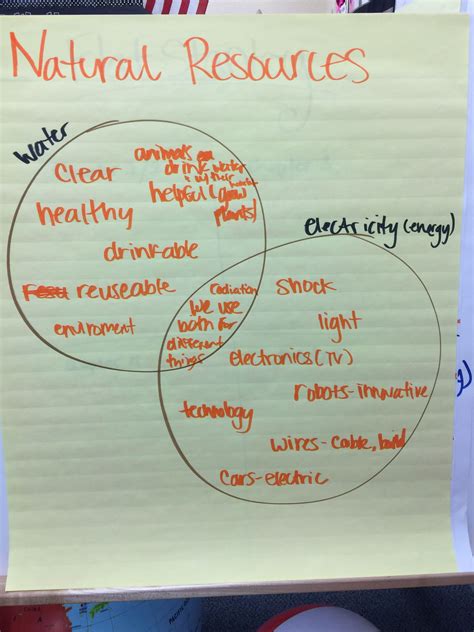 Natural Resources
water
clear
animals
drink water
helpful (grow
plants)
healthy
drinkable
reuseable
enviroment
electricity (energy)
radiation
We use
both for
different
things
shock
light
electronics (TV)
robots-innovative
technology
wires-cable,
cars-electric